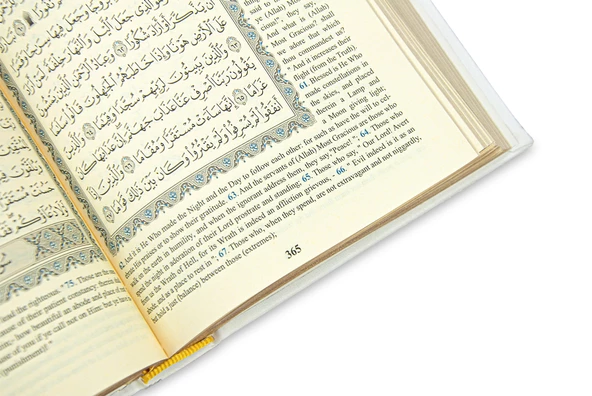 جَعَلَ ٱلَّيْلَ وَٱلنَّهَارَ
أَن يَذَّكَّرَ أَوْ أَرَادَ شُكُورًا ٦٢ وَعِبَادُ ٱلرَّحْمَٰنِ ٱلَّذِينَ
عَلَى ٱلْأَرْضِ هَوْنًا وَإِذَا خَاطَبَهُمُ ٱلْجَٰهِلُونَ قَالُوا۟
٦٣ وَٱلَّذِينَ يَبِيتُونَ لِرَبِّهِمْ سُجَّدًا وَقِيَٰمًا ٦٤
يَقُولُونَ رَبَّنَا ٱصْرِفْ عَنَّا عَذَابَ جَهَنَّمَ إِنَّ عَذَابَهَا كَانَ
غَرَامًا ٦٥ إِنَّهَا سَآءَتْ مُسْتَقَرًّا وَمُقَامًا ٦٦ وَٱلَّذِينَ إِذَآ
أَنفَقُوا۟ لَمْ يُسْرِفُوا۟ وَلَمْ يَقْتُرُوا۟ وَكَانَ بَيْنَ ذَٰلِكَ قَوَامًا ٦٧
said to
ye (Allah) Most
cious!", they say,
" And what is (Allah)
Most Gracious? Shall
we adore that which
thou commandest us?
" And it increases their
flight (from the Truth).
61. Blessed is He Who
made constellations in
the skies, and placed
therein a Lamp and
a Moon giving light;
And it is He Who made the Night and the Day to follow each other: for such as have the will to cel-
ebrate His praises or to show their gratitude. 63. And the servants of (Allah) Most Gracious are those who
walk on the earth in humility, and when the ignorant address them, they say, "Peace! "; 64. Those who
spend the night in adoration of their Lord prostrate and standing; 65. Those who say, " Our Lord! Avert
from us the Wrath of Hell, for its Wrath is indeed an affliction grievous,- 66. " Evil indeed is it as an
abode, and as a place to rest in "; 67. Those who, when they spend, are not extravagant and not niggardly,
but hold a just (balance) between those (extremes);
365
and the righteous. "75. Those are the
because of their patient constancy: therein
how beautiful an abode and place of
of you if ye call not on Him: but ye have
(punishment)! "